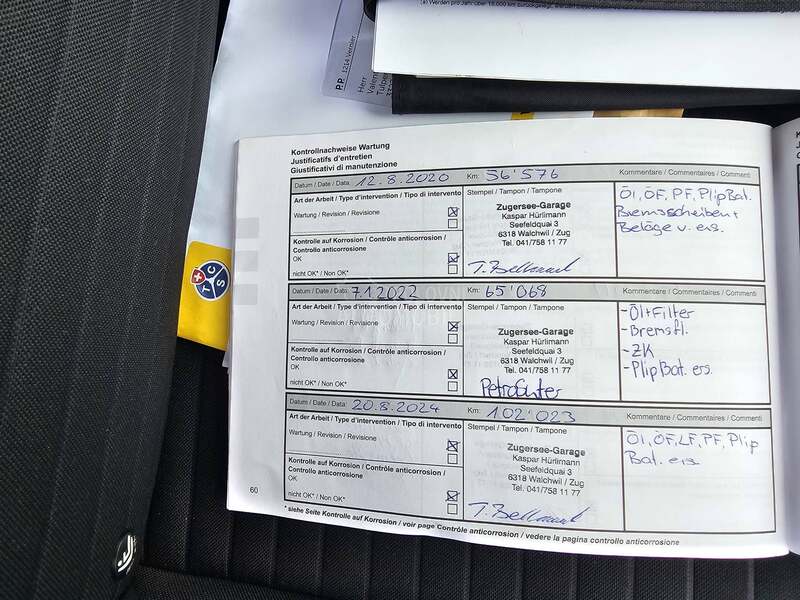 (a) Werden pro Jahr über 15.000 km zurückgelegt, werden
P.P. 1214 Vernier
Herr
TCS
Kontrollnachweise Wartung
Justificatifs d'entretien
Giustificativi di manutenzione
Datum / Date / Data: 12.8.2020 Km: 56'576 Kommentare / Commentaires / Commenti
Art der Arbeit / Type d'intervention / Tipo di intervento
Wartung / Revision / Revisione
Kontrolle auf Korrosion / Contrôle anticorrosion /
Controllo anticorrosione
OK
nicht OK* / Non OK*
Stempel / Tampon / Tampone
Zugersee-Garage
Kaspar Hürlimann
Seefeldquai 3
6318 Walchwil / Zug
Tel. 041/758 11 77
Öl, ÖF, PF, PlipBat.
Bremsscheiben+
Beläge v. ers.
Datum / Date / Data: 7.1.2022 Km: 65'068 Kommentare / Commentaires / Commenti
Art der Arbeit / Type d'intervention / Tipo di intervento
Wartung / Revision / Revisione
Kontrolle auf Korrosion / Contrôle anticorrosion /
Controllo anticorrosione
OK
nicht OK* / Non OK*
Stempel / Tampon / Tampone
Zugersee-Garage
Kaspar Hürlimann
Seefeldquai 3
6318 Walchwil / Zug
Tel. 041/758 11 77
-Öl+Filter
-Bremsfl.
-ZK
-PlipBat. ers.
Datum / Date / Data: 20.8.2024 Km: 102'023 Kommentare / Commentaires / Commenti
Art der Arbeit / Type d'intervention / Tipo di intervento
Wartung / Revision / Revisione
Kontrolle auf Korrosion / Contrôle anticorrosion /
Controllo anticorrosione
OK
nicht OK* / Non OK*
Stempel / Tampon / Tampone
Zugersee-Garage
Kaspar Hürlimann
Seefeldquai 3
6318 Walchwil / Zug
Tel. 041/758 11 77
Öl, ÖF, LF, PF, Plip
Bat. ers.
60
* siehe Seite Kontrolle auf Korrosion / voir page Contrôle anticorrosion / vedere la pagina controllo anticorrosione